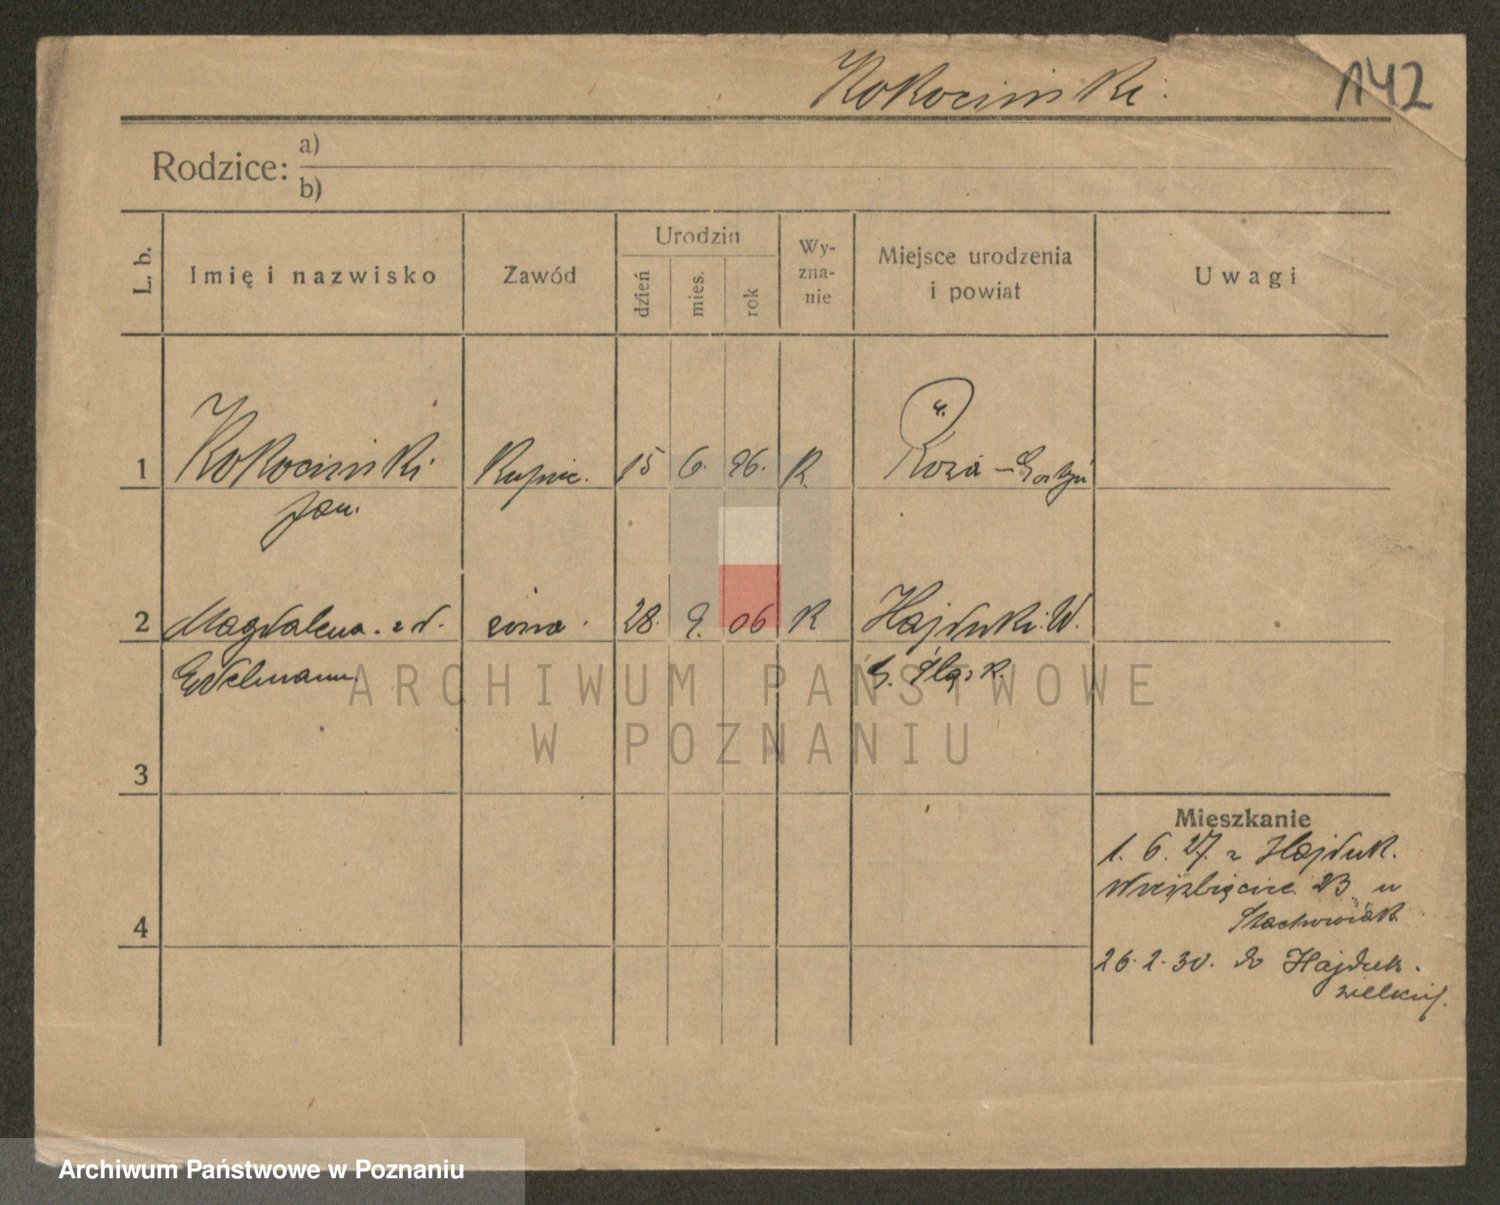 Kokociński.
142
Rodzice: a)
b)
L. b.
Imię i nazwisko
Zawód
Urodzin
dzień
mies.
rok
Wy-
zna-
nie
Miejsce urodzenia
i powiat
Uwagi
1 Kokociński Kupiec. 15 6. 96. K. Roza - Gostyń
Jan.
2 Magdalena z d. żona. 28. 9. 06 K Hajduki. W.
Edelmann. G. Śląsk.
3
4
Mieszkanie
1. 6. 27. z Hajduk.
Wierzbięcice. 23 u
Stachowiak
26. 2. 30. do Hajduk.
wielkich.
ARCHIWUM PAŃSTWOWE
W POZNANIU
Archiwum Państwowe w Poznaniu